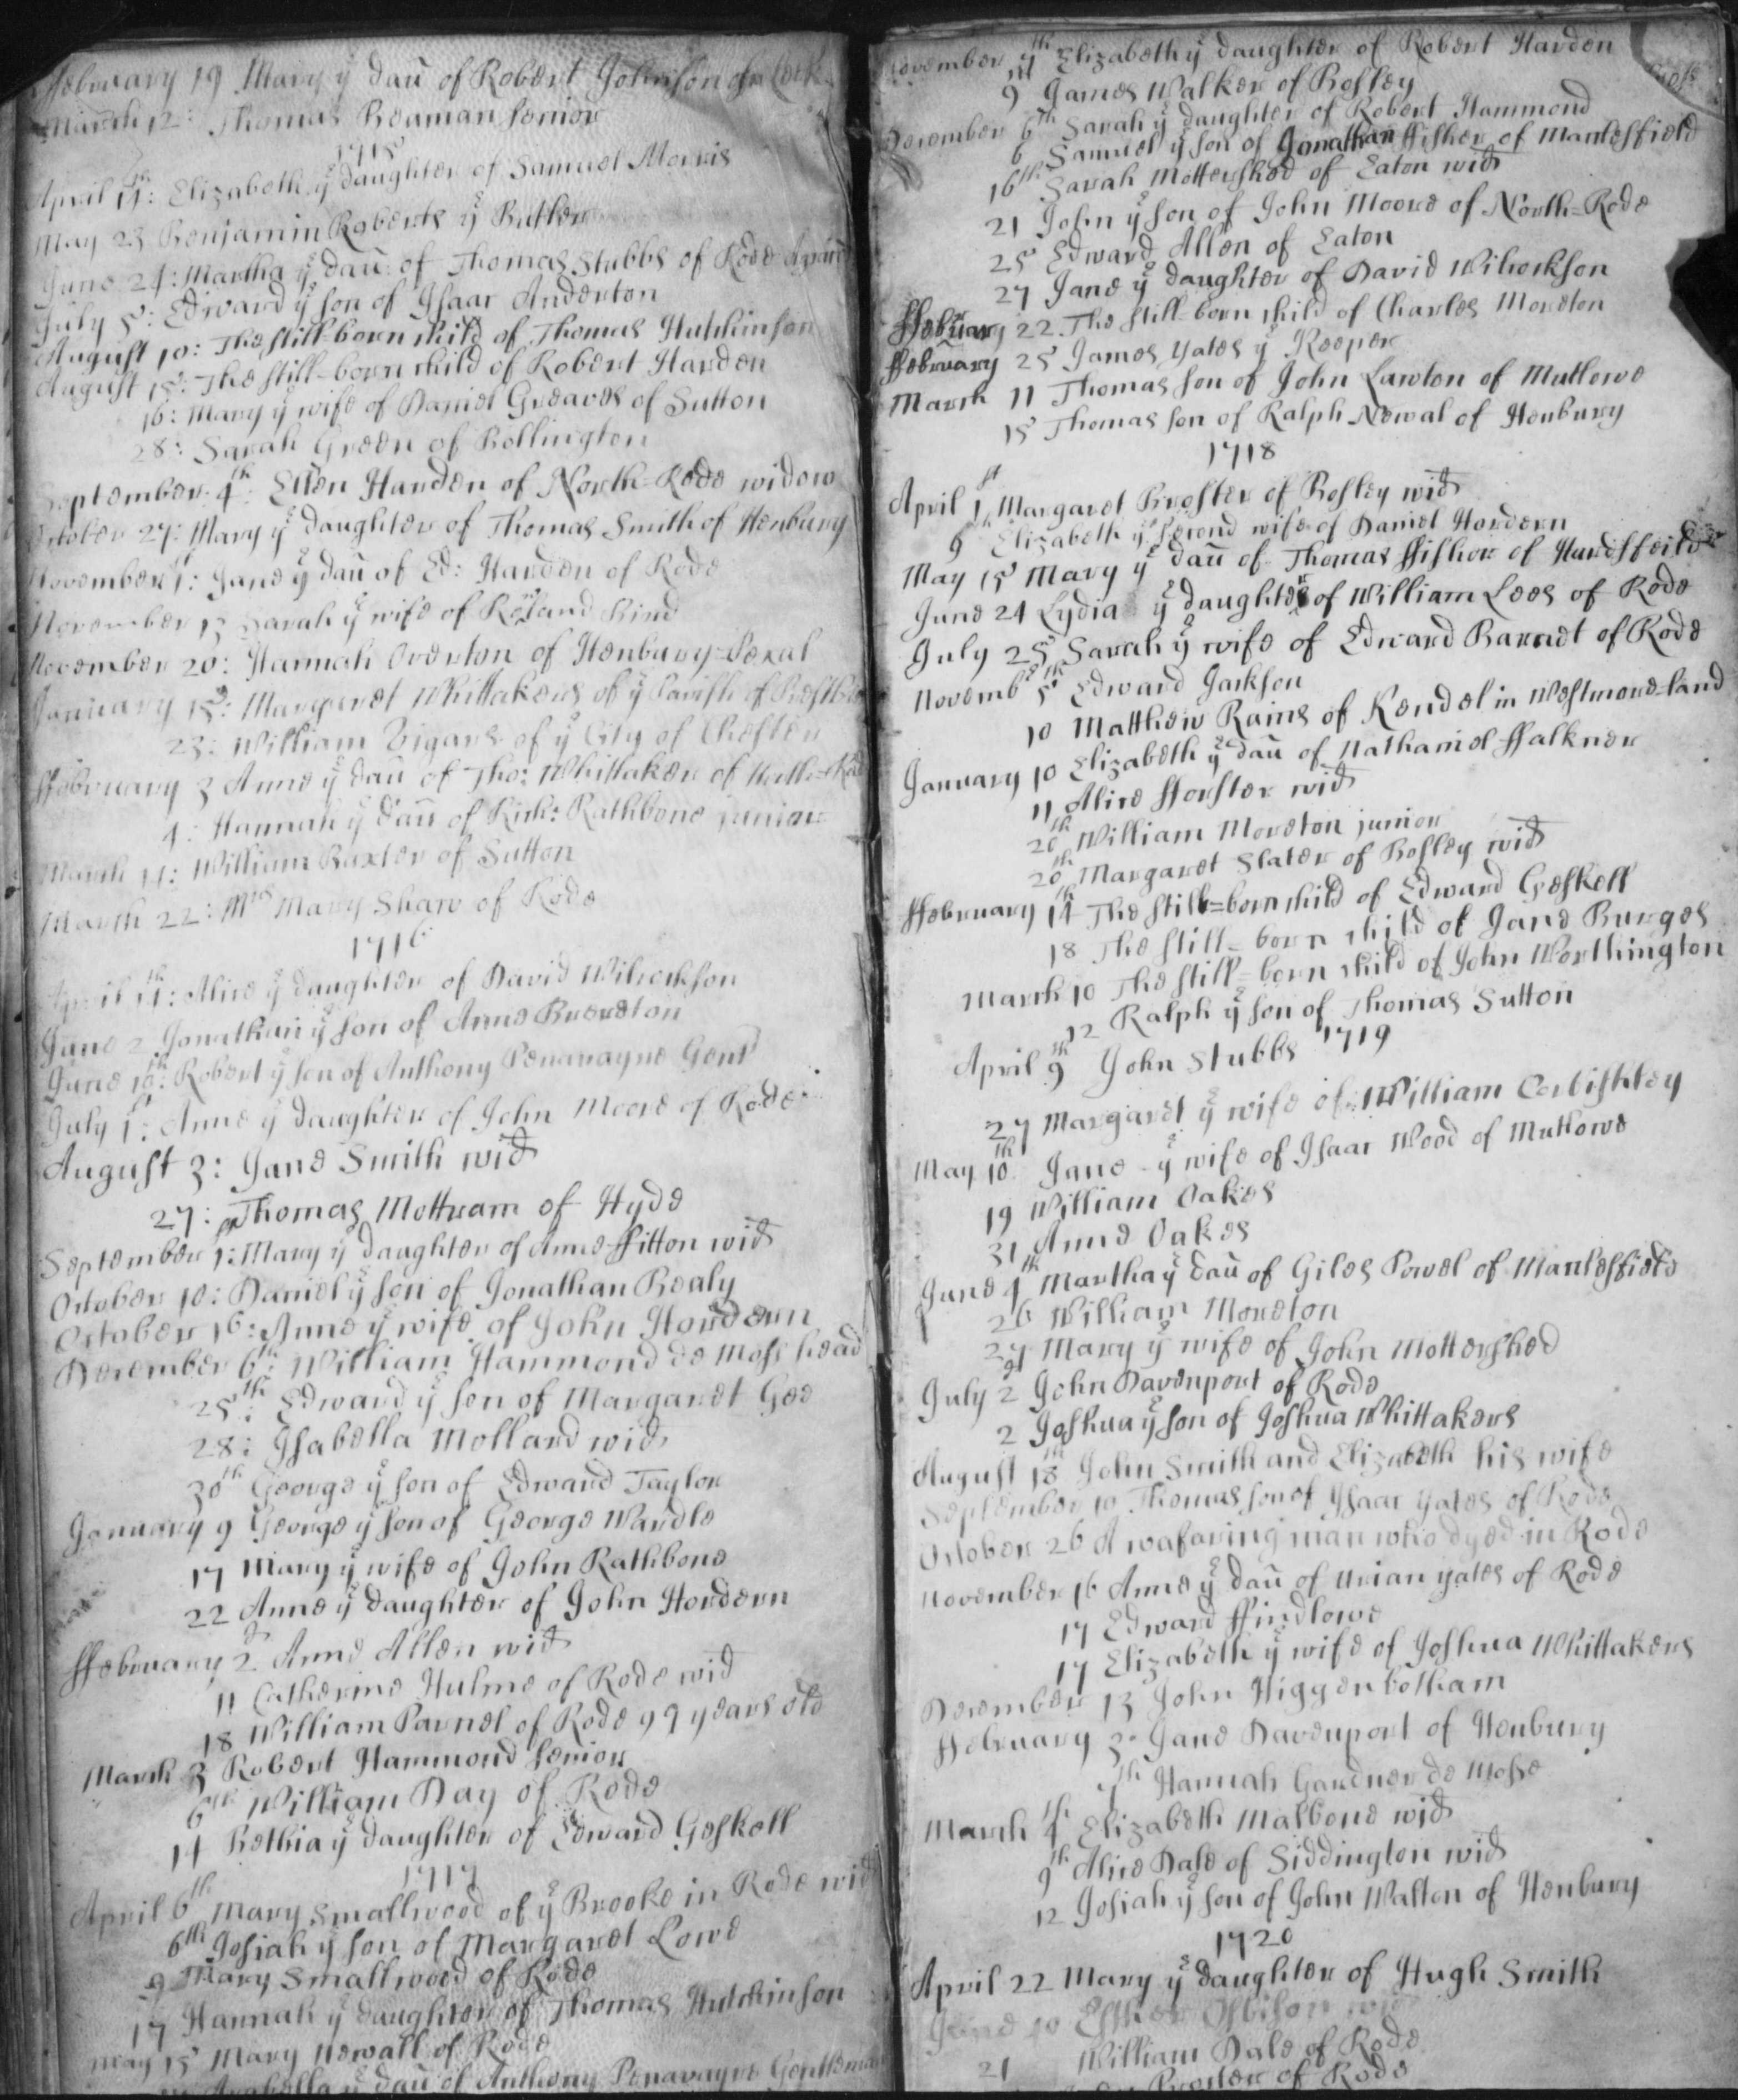 ffebruary 19 Mary yͤ dau̅ of Robert Johnson
March 12: Thomas Beaman senior
1715
April 14th: Elizabeth yͤ daughter of Samuel Morris
May 23 Benjamin Roberts yͤ Butler
June 24: Martha yͤ dau̅: of Thomas Stubbs of Rode
July 5: Edward yͤ son of Isaac Anderton
August 10: The still-born child of Thomas Hutchinson
August 15: The still-born child of Robert Harden
16: Mary yͤ wife of Daniel Greaves of Sutton
28: Sarah Green of Bollington
September 4th: Ellen Harden of North-Rode widow
October 27: Mary yͤ daughter of Thomas Smith of Henbury
November 1: Jane yͤ dau̅ of Ed: Harden of Rode
November 13 Sarah yͤ wife of Roland Bind
November 20: Hannah Overton of Henbury-Pexal
January 15: Margaret Whittakers of yͤ Parish of
23: William Vigars of yͤ City of Chester
ffebruary 3 Anne yͤ dau̅ of Tho: Whittaker of
4: Hannah yͤ dau̅ of Rich: Rathbone junior
March 11: William Baxter of Sutton
March 22: Mrs Mary Shaw of Rode
1716
April 11th: Alice yͤ daughter of David Wilcockson
June 2 Jonathan yͤ son of Anne Brereton
June 10th: Robert yͤ son of Anthony Penavayre Gent
July 1st: Anne yͤ daughter of John Moore of Rode
August 3: Jane Smith wid
27: Thomas Mottram of Hyde
September 1: Mary yͤ daughter of Anne ffitton wid
October 10: Daniel yͤ son of Jonathan Bealy
October 16: Anne yͤ wife of John Hordern
December 6th: William Hammond de Moss head
25th: Edward yͤ son of Margaret Gee
28: Isabella Molland wid
30th George yͤ son of Edward Taylor
January 9 George yͤ son of George Wardle
17 Mary yͤ wife of John Rathbone
22 Anne yͤ daughter of John Hordern
ffebruary 2d Anne Allen wid
11 Catherine Hulme of Rode wid
18 William Parnel of Rode 99 years old
March 3 Robert Hammond senior
6th William Day of Rode
14 Bethia yͤ daughter of Edward Geskell
1717
April 6th Mary Smallwood of yͤ Brooke in Rode wid
6th Josiah yͤ son of Margaret Lowe
9 Mary Smallwood of Rode
17 Hannah yͤ daughter of Thomas Hutchinson
May 15 Mary Newall of Rode
Arabella yͤ dau̅ of Anthony Penavayre Gentleman
November Elizabeth yͤ daughter of Robert Harden
9th James Walker of Bosley
December 6th Sarah yͤ daughter of Robert Hammond
6 Samuel yͤ son of Jonathan ffisher of Manlesfield
16th Sarah Mottershed of Eaton wid
21 John yͤ son of John Moore of North-Rode
25 Edward Allen of Eaton
27 Jane yͤ daughter of David Wilcockson
ffebruary 22. The still-born child of Charles Moreton
ffebruary 25 James Yates yͤ Keeper
March 11 Thomas son of John Lawton of Mutlowe
15 Thomas son of Ralph Newal of Henbury
1718
April 1st Margaret Broster of Bosley wid
9th Elizabeth yͤ second wife of Daniel Hordern
May 15 Mary yͤ dau̅ of Thomas ffisher of
June 24 Lydia yͤ daughter of William Lees of Rode
July 25 Sarah yͤ wife of Edward Barnet of Rode
Novembr 5th Edward Jackson
10 Matthew Rains of Kendel in Westmore-land
January 10 Elizabeth yͤ dau̅ of Nathaniel ffalkner
11 Alice fforster wid
20th William Moreton junior
20th Margaret Slater of Bosley wid
ffebruary 14th The still=born child of Edward Geskell
18 The still-born child of Jane Burges
March 10 The still-born child of John Worthington
12 Ralph yͤ son of Thomas Sutton
1719
April 9th John Stubbs
27 Margaret yͤ wife of William Corbishley
May 10th Jane yͤ wife of Isaac Wood of Mutlowe
19 William Oakes
31 Anne Oakes
June 4th Martha yͤ dau̅ of Giles Powel of Manlesfield
26 William Moreton
27 Mary yͤ wife of John Mottershed
July 2d John Davenport of Rode
2 Joshua yͤ son of Joshua Whittakers
August 18th John Smith and Elizabeth his wife
September 10 Thomas son of Isaac Yates of Rode
October 26 A wafaring man who dyed in Rode
November 16 Anne yͤ dau̅ of Urian Yates of Rode
17 Edward ffindlowe
17 Elizabeth yͤ wife of Joshua Whittakers
December 13 John Higgenbotham
ffebruary 3 Jane Davenport of Henbury
Hannah Gardner de Mosse
March 4th Elizabeth Malbone wid
9th Alice Dale of Siddington wid
12 Josiah yͤ son of John Walton of Henbury
1720
April 22 Mary yͤ daughter of Hugh Smith
June 10 Esther
21 William Dale of Rode
of Rode